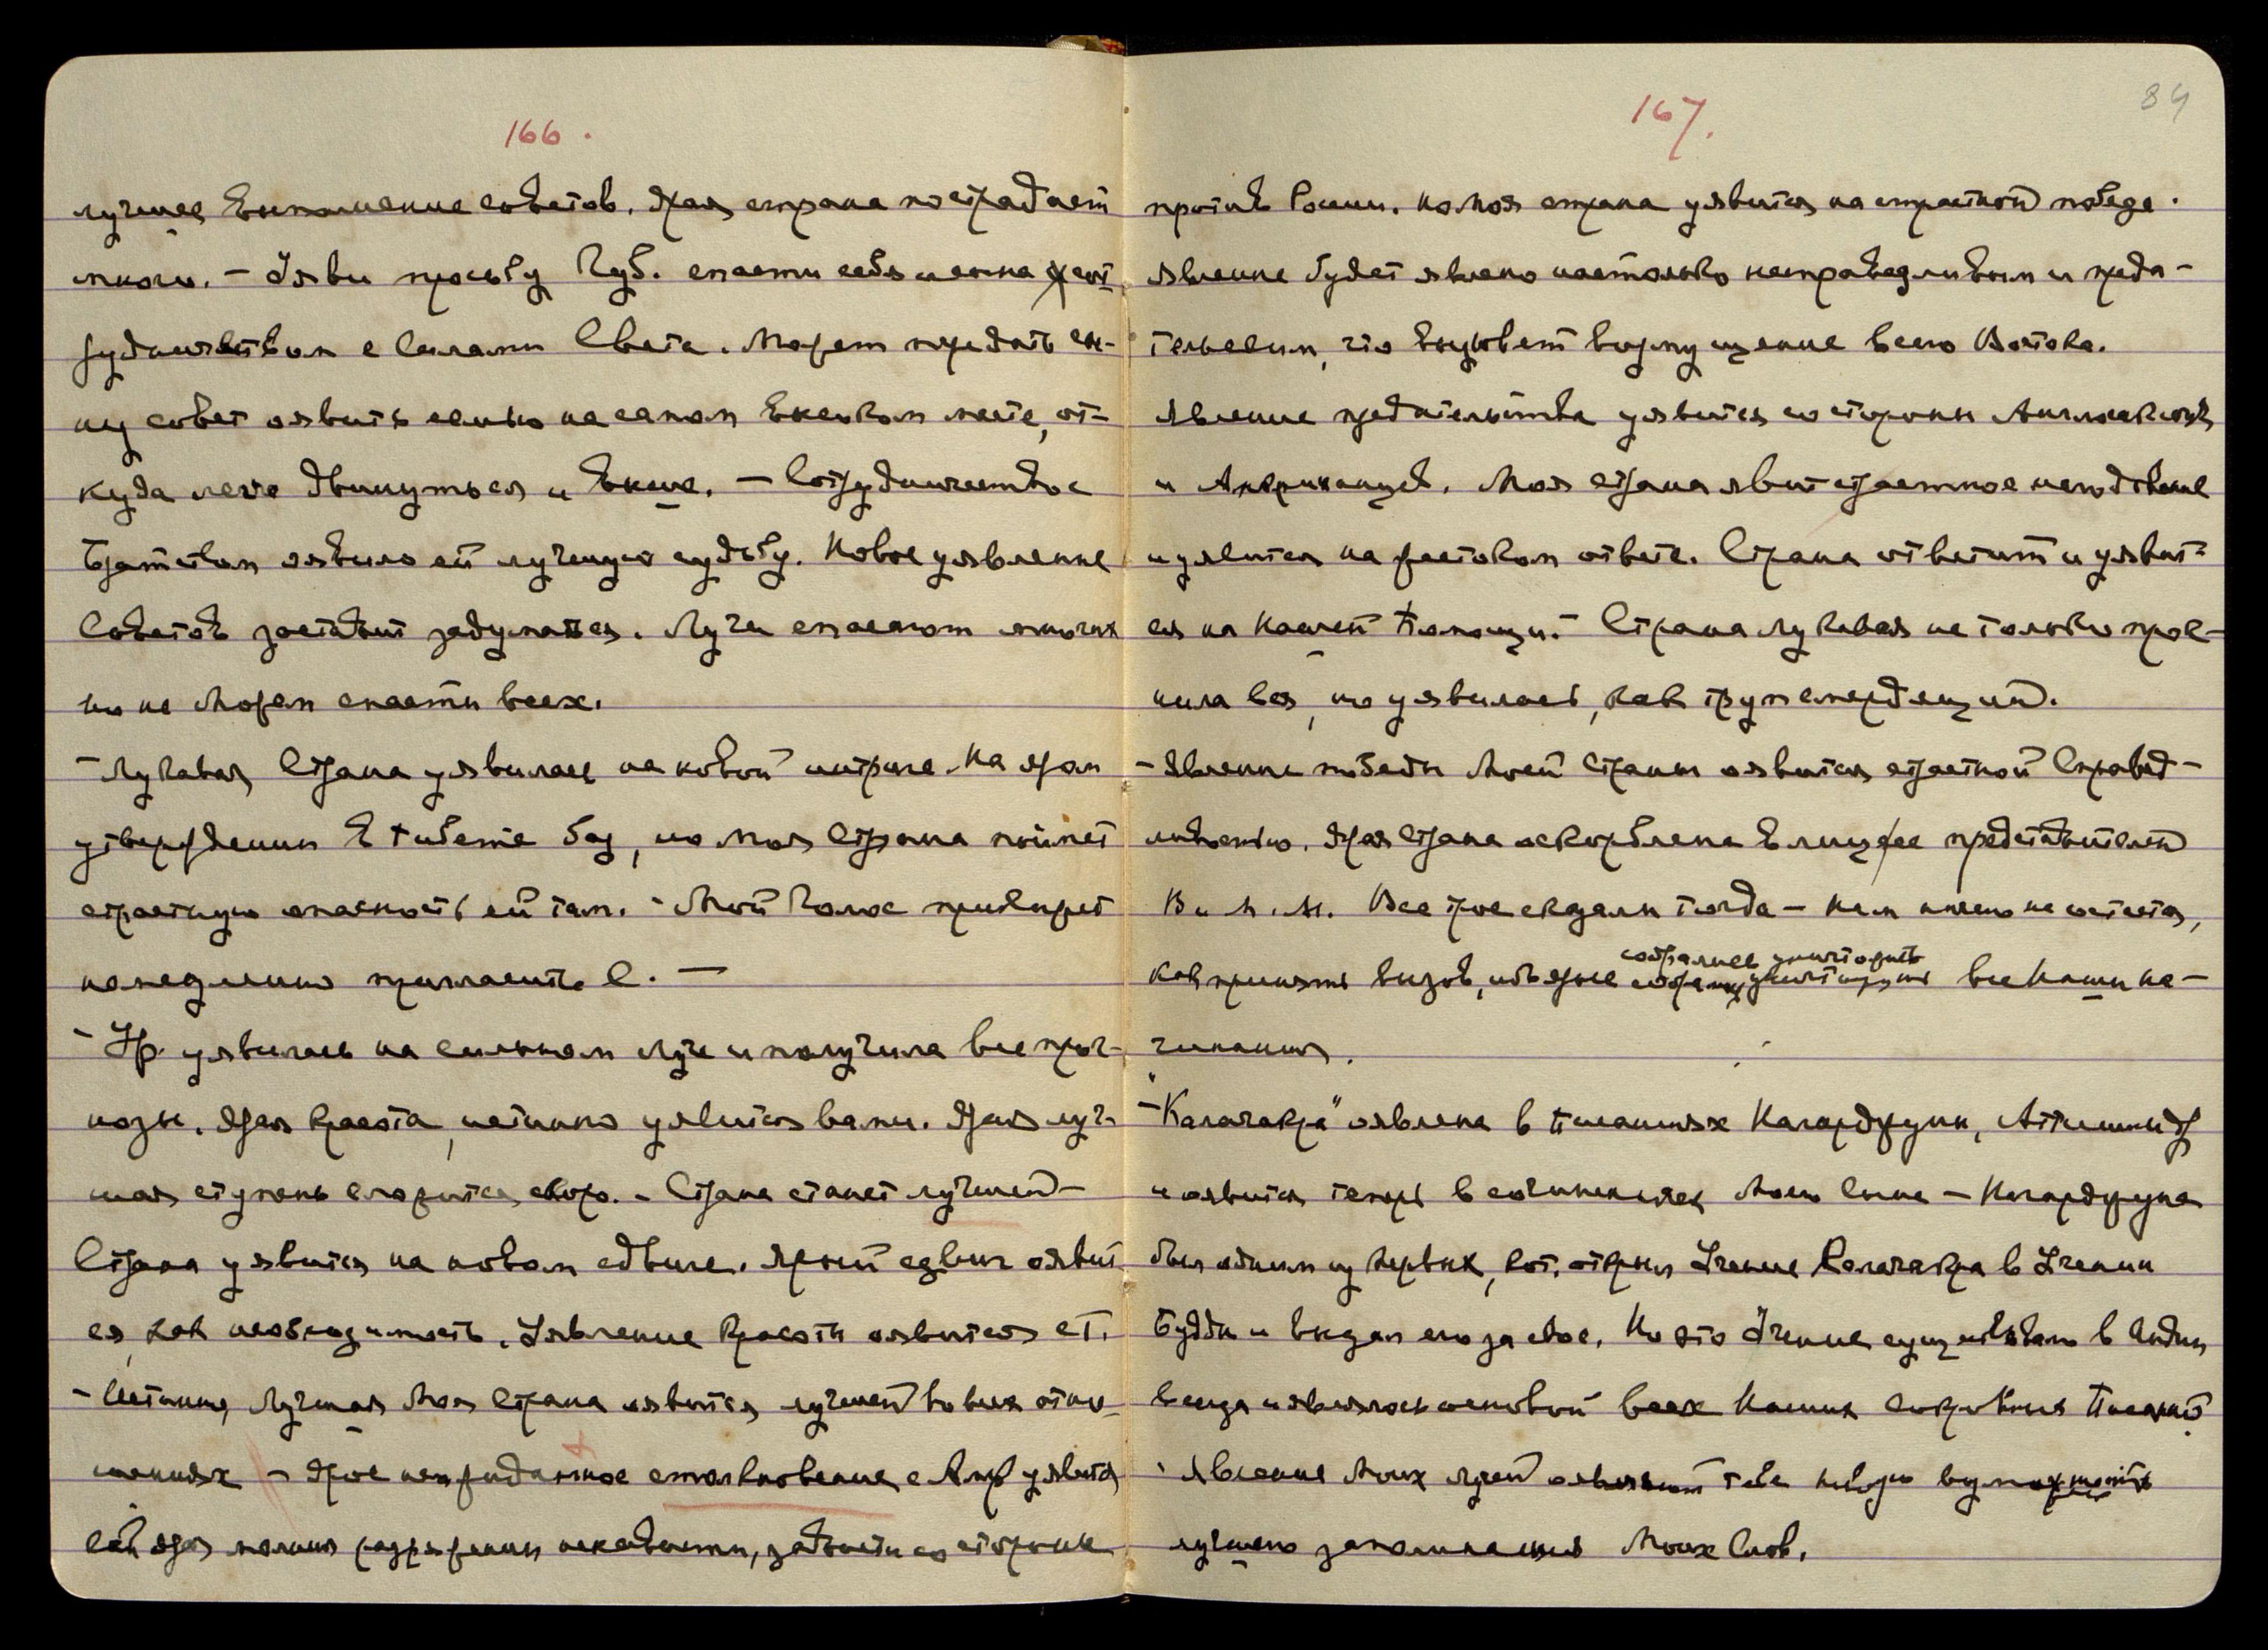 166.
лучшее выполнение советов. Ярая страна пострадает
много. – Яви просьбу Губ. спасти себя и сына
сотрудничеством с Силами Света. Может передать сы-
ну совет явить семью на самом высоком месте, от-
куда легче двинуться и выше. – Сотрудничество с
Братством явило ей лучшую судьбу. Новое уявление
Советов заставит задуматься. Лучи спасают многих
но не Можем спасти всех.
– Лукавая Страна уявилась на новой интриге. На яром
утверждении в Тибете баз, но Моя Страна поймет
страстную опасность ей там. – Мой Голос
немедленно пригласить С. –
– Ур. уявилась на сильном Луче и получила все прог-
нозы. Ярая Красота, истинно уявится вами. Ярая луч-
шая ступень сложится скоро. – Страна станет лучшей –
Страна уявится на новом сдвиге. Ярый сдвиг оявит
ся, как необходимость. Уявление Красоты оявится ст.
– Истинно, Лучшая Моя Страна оявится лучшей во всех отно-
шениях – Ярое неожиданное столкновение с Анг уявится
ярая полная раздражения ненависти, зависти со стороны
167.
84
против России. Но Моя страна уявится на страстной победе.
Явление будет явлено настолько несправедливым и преда-
тельским, что вызовет возмущение всего Востока.
Явление предательства уявится со стороны Англосаксов
и Американцев. Моя Страна явит страстное негодование
и уявится на жестоком ответе. Страна ответит и уявит-
ся на Нашей Помощи. – Страна Лукавая не только прог-
нила вся, но уявилась, как труп смердящий.
– Явление победы Моей Страны оявится страстной Справед-
ливостью. Ярая Страна оскорблена в лице ее представителей
В и М. М. Все трое сказали тогда – Нам ничего не остается,
как принять вызов, ибо ярые собрались уничтожить все Наши на-
чинания.
– "Калачакра" оявлена в Писаниях Нагарджуны, Аттиши
и оявится теперь в сочинениях Моего Сына – Нагарджуна
был одним из первых, кот. открыл Учение Калачакра в Учении
Будды и выдал его за свое. Но это Учение существовало в Индии
всегда и являлось основой всех Наших сокровенных Писаний.
– Явление Моих Лучей оявит тебе новую возможность
лучшего запоминания Моих Слов.